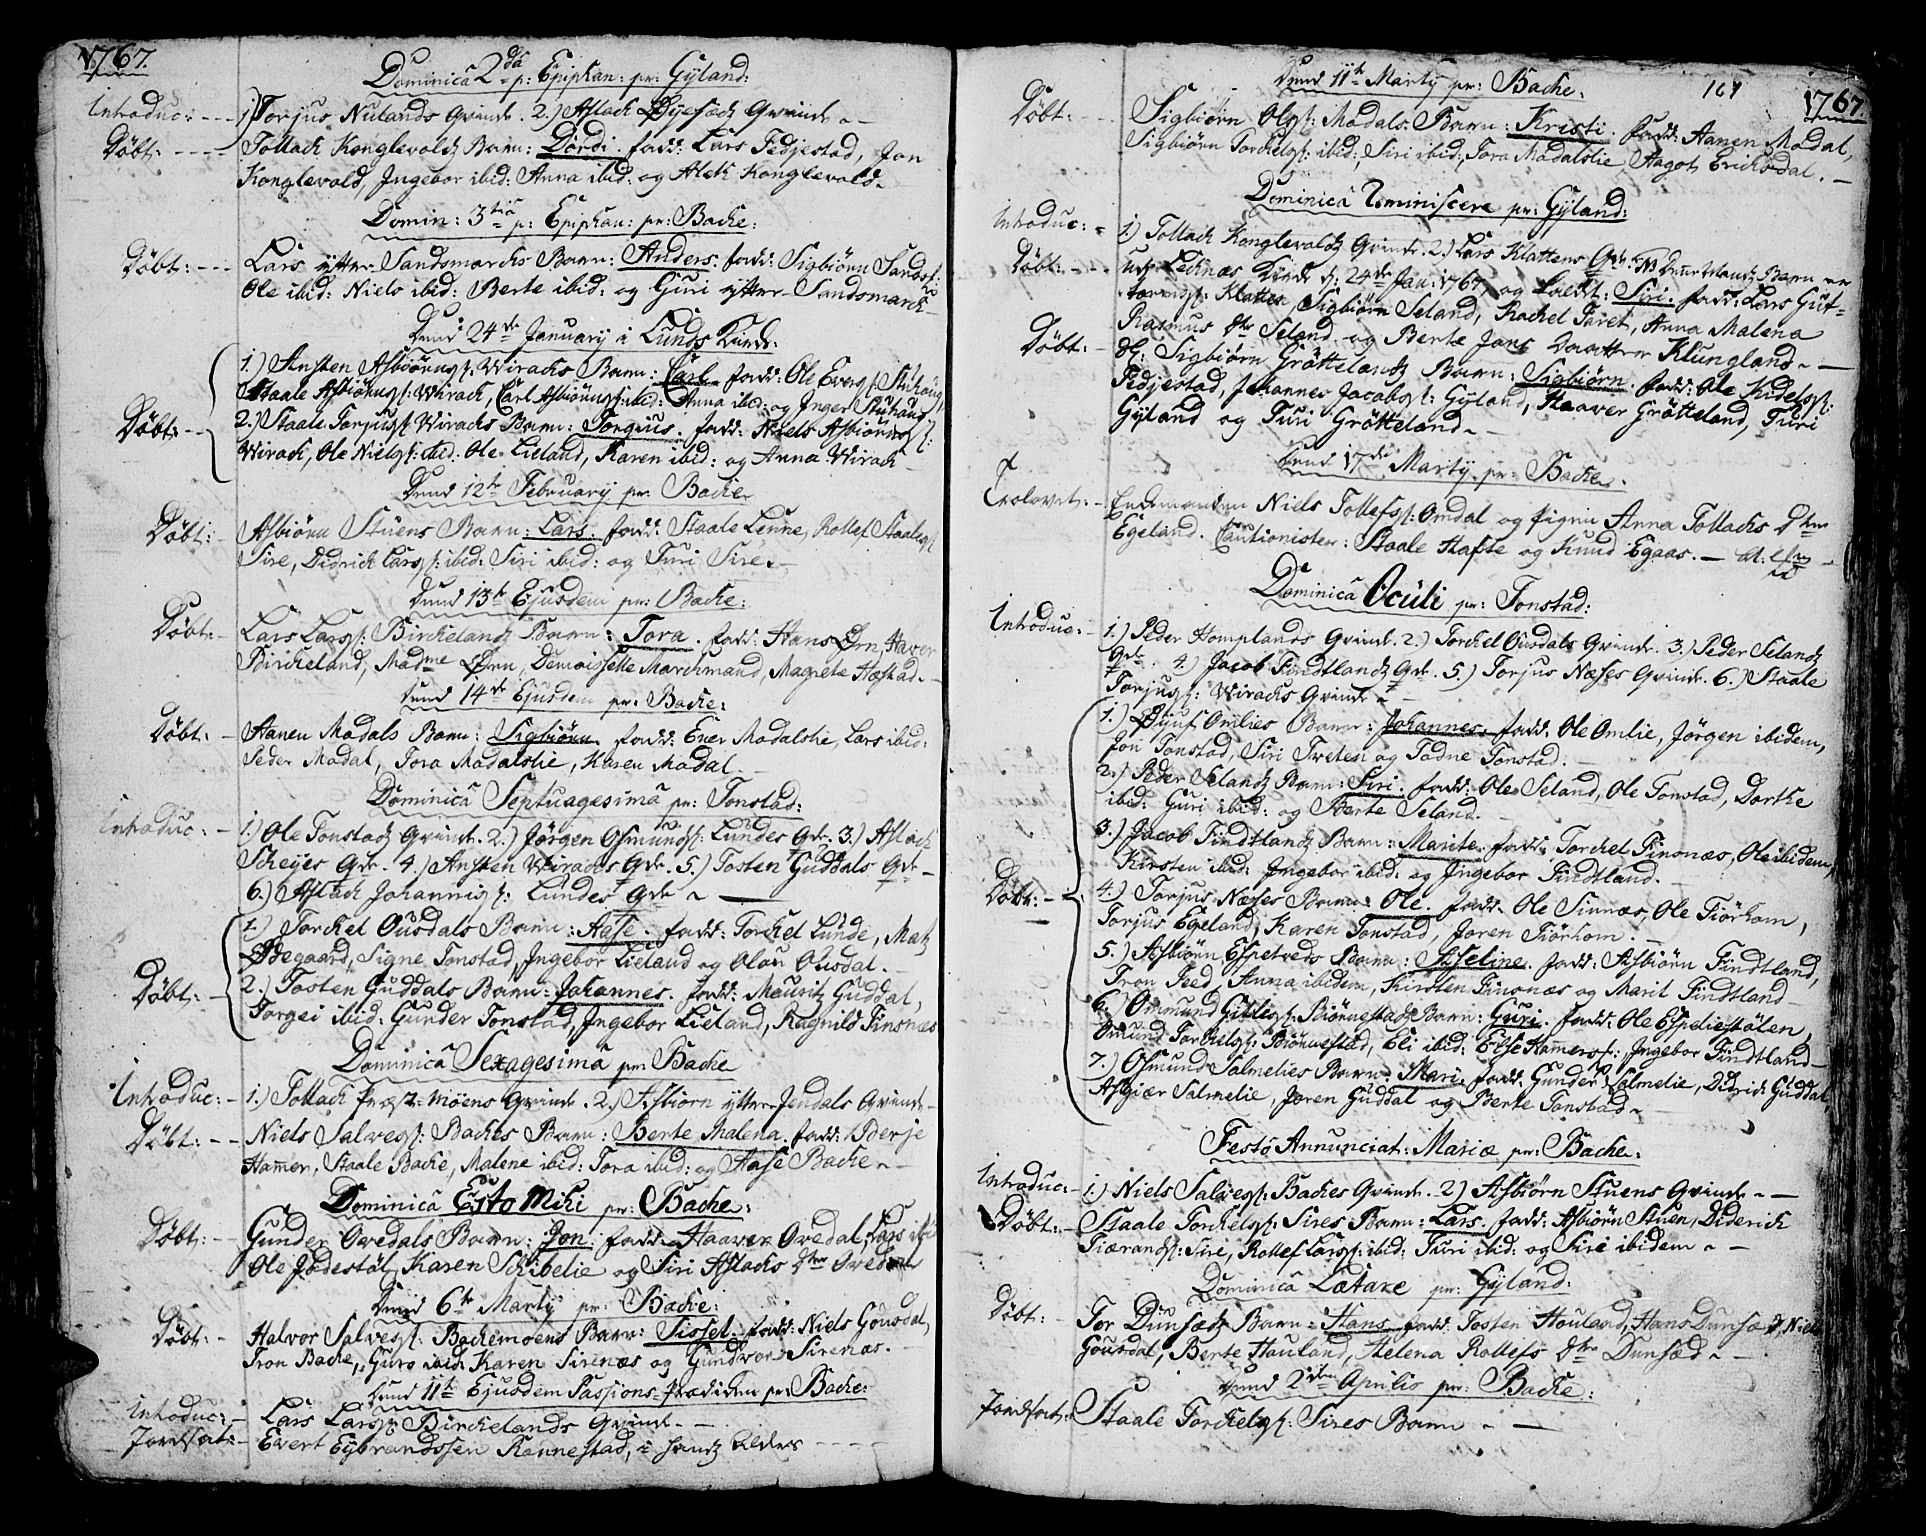 1767.
Dominica 2da p: Epiphan: pr: Gyland:
Introduc: --- 1) Torjus Nulands Qvinde. 2.) Aslach Qvinde
Døbt: ---- Tollach Konglevolds Barn: Dordi. fadd: Lars Fedjestad, Jon
Konglevold, Ingebor ibid: Anna ibid: og Aleh Konglevold.
Domin: 3tia p: Epiphan: pr: Backe:
Døbt: --- Lars ytter Sandsmarchs Barn: Anders. fadd: Sigbiörn Sands:
Ole ibid: Niels ibid: Berte ibid: og Guri ytter Sandsmarch
Dend 24de January i Lunds Kirke:
1.) Ansten Asbiörns: Wirachs Barn: Carl. fadd: Ole Evers: Stuhaug,
Staale Asbiörns: Wirach, Carl Asbiörns: ibid: Anna ibid: og Inger Stuhaug
Døbt: -- 2.) Staale Torjus: Wirachs Barn: Torgius. fadd: Niels Asbiörns:
Wirach, Ole Niels: ibid: Ole Lieland, Karen ibid: og Anna Wirach
Dend 12te February pr: Backe
Døbt: Asbiörn Stuens Barn: Lars. fadd: Staale Lenne, Rollef Staales:
Sire, Didrich Lars: ibid: Siri ibid: og Turi Sire.
Dend 13de Ejusdem pr: Backe:
Døbt: - Lars Lars: Birkelands Barn: Tora. fadd: Hans Ørn, Haver
Birckeland, Madme Ørn, Demoisselle Marchmand, Magrete Hæstad.
Dend 14de Ejusdem pr: Backe:
Døbt: - Aanen Modals Barn: Sigbiörn. fadd: Ener Modalslie, Lars ibid:
Peder Modal, Tora Modalslie, Karen Modal
Dominica Septuagesima pr: Tonstad:
Introduc: - 1.) Ole Tonstads Qvinde. 2.) Jörgen Osmunds: Lundes Qde. 3.) Aslach
Scheyes Qde. 4.) Ansten Wirachs Qde. 5.) Tosten Guddals Qde
6.) Aslach Johannis: Lundes Qde
1.) Torchel Ousdals Barn: Aase. fadd: Torchel Lunde, Mats
Ødegaard, Signe Tonstad, Ingebor Lieland og Olau Ousdal.
Døbt: - 2.) Tosten Guddals Barn: Johannes. fadd: Mauritz Guddal,
Torgei ibid: Gunder Tonstad, Ingebor Lieland, Ragnild Finsnæs
Dominica Sexagesima pr: Backe
Introduc: - 1.) Tollach Præstmoens Qvinde. 2.) Asbiörn ytter Jendals Qvinde
Døbt: -- Niels Salves: Backes Barn: Berte Malena. fadd: Berje
Hamer, Staale Backe, Malene ibid: Tora ibid: og Aase Backe
Dominica Esto Mihi pr: Backe:
Døbt: - Gunder Ovedals Barn: Jon. fadd: Haaver Ovedal, Lars ibid
Ole Jödestöl, Karen Schibelie og Siri Aslachs Dter Ovedal
Dend 6te Marty pr: Backe:
Døbt: - Halvor Salves: Backemoens Barn: Sissel. fadd: Niels Gousdal,
Tron Backe, Guro ibid: Karen Sirenæs og Gundvor Sirenæs.
Dend 11te Ejusdem Passions Prædiken pr: Backe:
Introduc: - Lars Lars: Birckelands Qvinde
Jordfæst: - Evert Eybrandssen Rannestad, i hans Alders
Dend 11te Marty pr: Backe: 167 1767.
Døbt: Sigbiörn Ols: Modals Barn: Kristi. fadd: Aanen Modal,
Sigbiörn Torchels: ibid: Siri ibid: Tora Modalslie, Aagot Eriksdal.
Dominica Reminiscere pr: Gyland:
Introduc: - 1.) Tollach Konglevolds Qvinde. 2.) Lars Klattens Qde
Døbt: --- udj Lechnæs Kirke d: 24de Jan: 1767, og kaldt: Siri. fadd: Lars Gut-
torms: Klatten Sigbiörn Seland, Rachel Faret, Anna Malena
Rasmus Dtr Seland og Berte Jons Daatter Klungland.
Døbt: - Sigbiörn Gröttelands Barn: Sigbiörn. fadd: Ole Kidels:
Fedjestad, Johannes Jacobs: Gyland, Haaver Grötteland, Turi
Gyland og Turi Grötteland
Dend 17de Marty pr: Backe.
Trolovet: - Enkemanden Niels Tollefs: Omdal og Pigen Anna Tollachs Dter
Egeland. Cautionister: Staale Hafte og Knud Egaas.
Dominica Oculi pr: Tonstad:
Introduc: - 1.) Peder Homplands Qvinde. 2.) Torchel Ousdals Qvinde. 3.) Peder Selands
Qde. 4.) Jacob Findtlands Qde. 5.) Torjus Næses Qvinde. 6.) Staale
Torjus: Wirachs Qvinde
1.) Omlies Barn: Johannes. fadd: Ole Omlie, Jörgen ibidem,
Jon Tonstad, Siri Tveten og Tadne Tonstad.
2.) Peder Selands Barn: Siri. fadd: Ole Seland, Ole Tonstad, Dorthe
ibid: Guri ibid: og Berte Seland.
3.) Jacob Findtlands Barn: Marite. fadd: Torchel Finonæs, Ole ibidem,
Kirsten ibid: Ingebor ibid: og Ingebor Findtland.
Døbt: - 4.) Torjus Næses Barn: Ole. fadd: Ole Sinnæs, Ole Tiörhom,
Torjus Egeland, Karen Tonstad, Joren Tiörhom.
5.) Asbiörn Espetveds Barn: Asseline. fadd: Asbiörn Findtland,
Tron Feed, Anna ibidem, Kirsten Finonæs og Marit Findtland
6.) Ommund Gitlis: Biönnestads Barn: Guri. fadd: Ole Espeliestölen,
Omund Torkels: Biönnestad, Eli ibid: Else Hamers: Ingebor Findtland
7.) Osmund Salmelies Barn: Mari. fadd: Gunder Salmelie, Didrich Guddal,
Asgiær Salmelie, Joren Guddal og Berte Tonstad
Festo Annunciat: Mariæ pr: Backe:
Introduc: - 1.) Niels Salves: Backes Qvinde. 2.) Asbiörn Stuens Qvinde
Døbt: - Staale Torchels: Sires Barn: Lars. fadd: Asbiörn Stuen, Diderich
Tiærands: Sire, Rollef Lars: ibid: Turi ibid: og Siri ibidem
Dominica Lætare pr: Gyland:
Døbt: - Tor Dunsæds Barn: Hans. fadd: Tosten Houland, Hans Dunsæd, Niels
Gousdal, Berte Hauland, Helena Rollefs Dter Dunsæd
Dend 2den Aprilis pr: Backe:
Jordfæst: Staale Torchels: Sires Barn